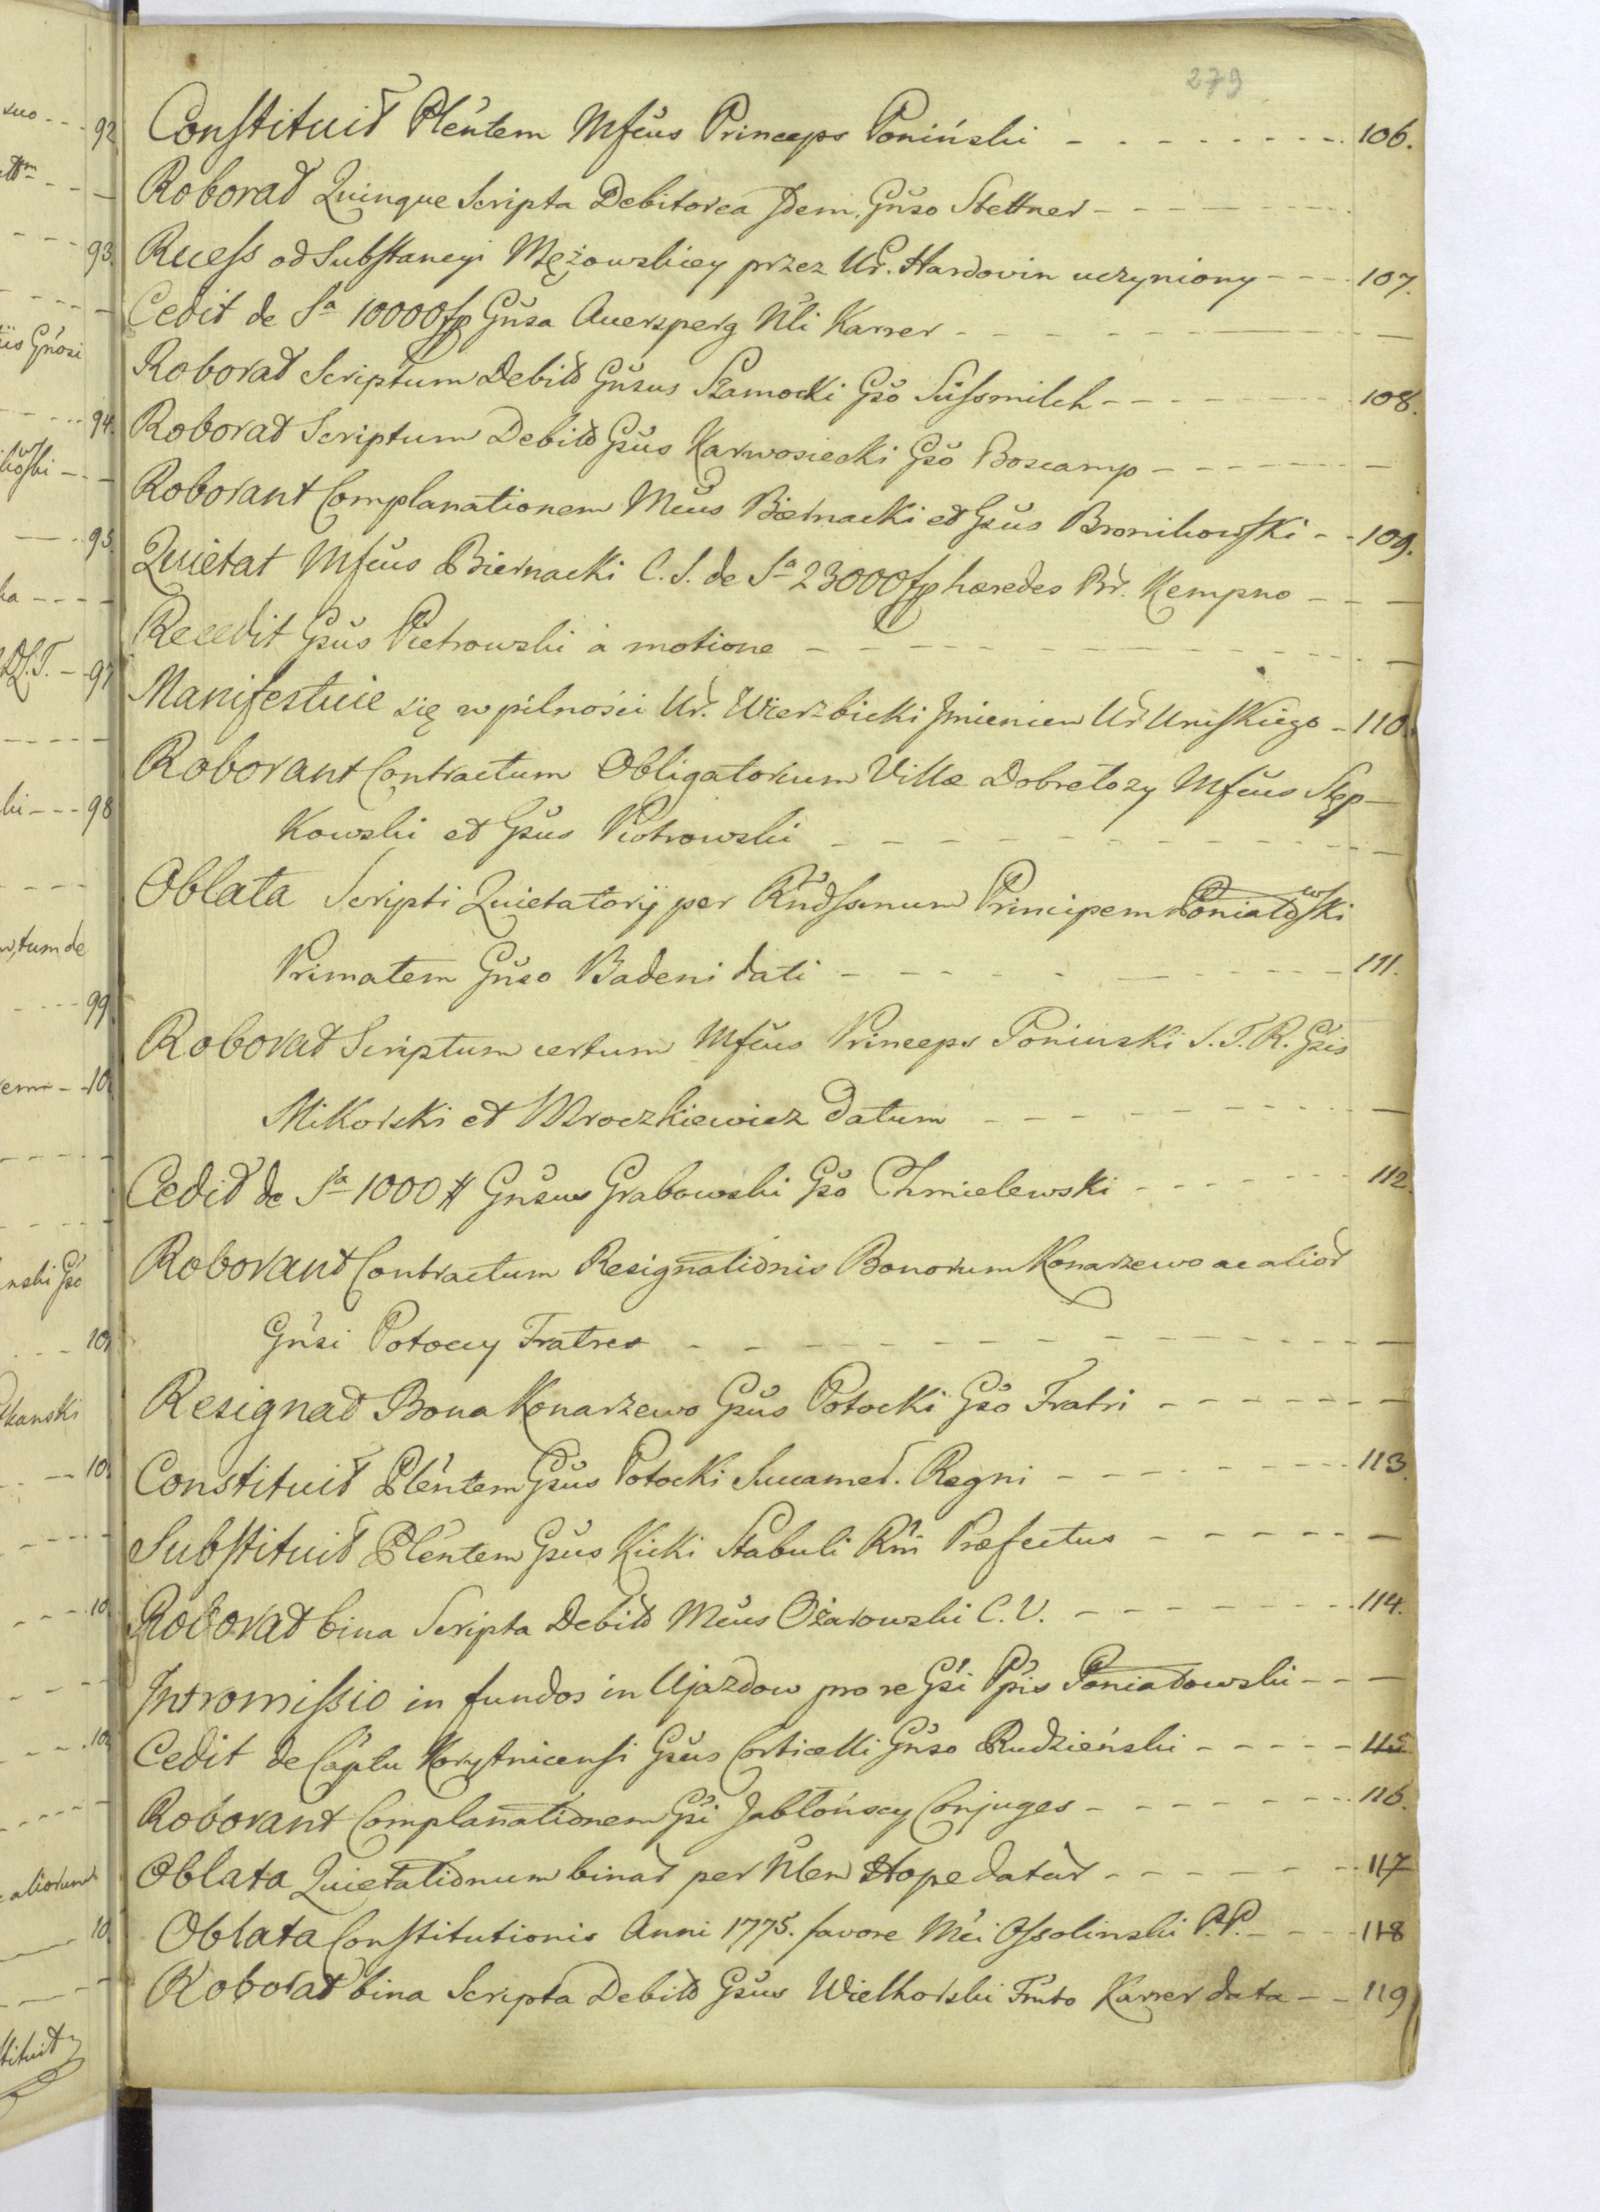 279
Constituit Plentem Mfcus Princeps Poniński - - - - - - - - 106.
Roborat Quinque Scripta Debitorea Idem Gnso Stettner - - - - - - -
Recess od Substancyi Mężowskiey przez Ur. Hardovin uczyniony - - - 107.
Cedit de Sa 10000 fp Gnsa Auersperg Nli Karrer - - - - - - -
Roborat Scriptum Debitt Gnsus Szamocki Gso Süssmilch - - - - - - - 108.
Roborat Scriptum Debitt Gsus Karwosiecki Gso Boscamp - - - - - - -
Roborant Complanationem Mcus Biernacki et Gsus Bronikowski - - 109.
Quietat Mfcus Biernacki C. S. de Sa 23000 fp hæredes Br. Kempno - - -
Recedit Gsus Pietrowski a motione - - - - - - - - - - -
Manifestuie się w pilności Ur. Wierzbicki Imieniem Ur Uruskiego - 110.
Roborant Contractum Obligatorium Villæ Dobretozy Mfcus Stęp-
kowski et Gsus Piotrowski - - - - - - - - - - -
Oblata Scripti Quietatorij per Rndssmum Principem Poniatowski
Primatem Gnso Badeni dati - - - - - - - - - 111.
Roborat Scriptum certum Mfcus Princeps Poninski S. T. R. Gsis
Mikorski et Mroczkiewicz datum - - - - - - -
Cedit de Sa 1000 # Gnsus Grabowski Gso Chmielewski - - - - - - 112.
Roborant Contractum Resignationis Bonorum Konarzewo ac alior
Gnsi Potoccy Fratres - - - - - - - - - - -
Resignat Bona Konarzewo Gsus Potocki Gso Fratri - - - - - - -
Constituit Plentem Gsus Potocki Succamer. Regni - - - - - - - 113.
Substituit Plentem Gsus Kicki Stabuli Rni Præfectus - - - - - - -
Roborat bina Scripta Debitt Mcus Ożarowski C. V. - - - - - - - 114.
Intromissio in fundos in Ujazdow pro re Gsi Ppis Poniatowski - - -
Cedit de Caplu Korytnicensi Gsus Corticelli Gnso Rudzieński - - - - - 115
Roborant Complanationem Gsi Jabłońscy Conjuges - - - - - - - 116.
Oblata Quietationum binar per Nlem Hope datar - - - - - - - 117
Oblata Constitutionis Anni 1775. favore Mci Ossolinski P. P. - - - 118
Roborat bina Scripta Debitt Gsus Wielhorski Fmto Karrer data - - 119